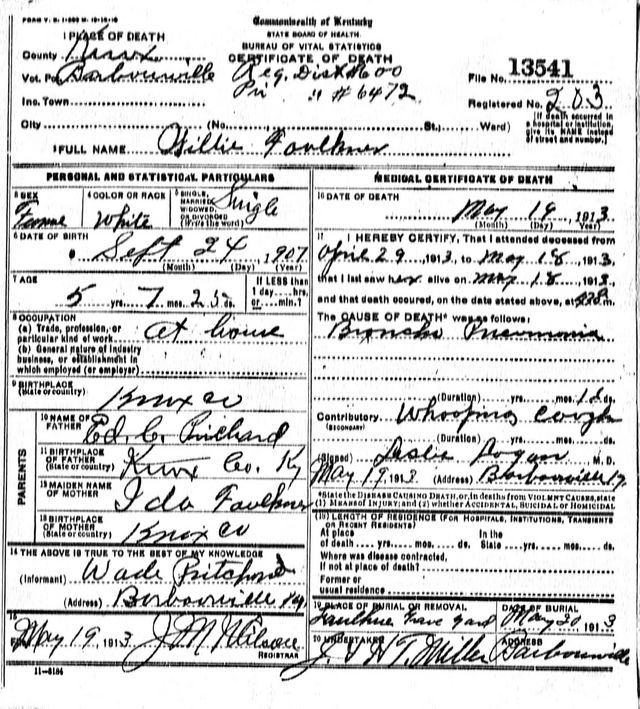 FORM V. S. 1-
Commonwealth of Kentucky
STATE BOARD OF HEALTH.
BUREAU OF VITAL STATISTICS
CERTIFICATE OF DEATH
1 PLACE OF DEATH
County Knox
Vot. Pct Barbourville
Reg. Dist #600
Pri " #6472
File No. 13541
Inc. Town
Registered No. 203
City (No. St.; Ward)
[If death occurred in a hospital or institution, give its NAME instead of street and number.]
2 FULL NAME Willie Faulkner
PERSONAL AND STATISTICAL PARTICULARS
3 SEX Female
4 COLOR OR RACE White
5 SINGLE, MARRIED, WIDOWED, OR DIVORCED (Write the word) Single
6 DATE OF BIRTH Sept 24, 1907
(Month) (Day) (Year)
7 AGE 5 yrs. 7 mos. 25 ds.
If LESS than 1 day....hrs. or....min.?
8 OCCUPATION
(a) Trade, profession, or particular kind of work at house
(b) General nature of industry business, or establishment in which employed (or employer)
9 BIRTHPLACE (State or country) Knox co
PARENTS
10 NAME OF FATHER Ed. C. Prichard
11 BIRTHPLACE OF FATHER (State or country) Knox Co. Ky
12 MAIDEN NAME OF MOTHER Ida Faulkner
13 BIRTHPLACE OF MOTHER (State or country) Knox co
14 THE ABOVE IS TRUE TO THE BEST OF MY KNOWLEDGE
(Informant) Wade Pritchard
(Address) Barbourville Ky.
15
May 19, 1913 J. M.
REGISTRAR
11-6184
MEDICAL CERTIFICATE OF DEATH
16 DATE OF DEATH May 19, 1913
(Month) (Day) (Year)
17 I HEREBY CERTIFY, That I attended deceased from
April 29 1913, to May 18 1913,
that I last saw her alive on May 18 1913,
and that death occured, on the date stated above, at m.
The CAUSE OF DEATH* was as follows:
Broncho Pneumonia
(Duration) yrs. mos. ds.
Contributory Whooping Cough
(SECONDARY)
(Duration) yrs. mos. ds.
(Signed) Leslie Logan M. D.
May 19 1913 (Address) Barbourville Ky.
*State the DISEASE CAUSING DEATH, or, in deaths from VIOLENT CAUSES, state (1) MEANS OF INJURY; and (2) whether ACCIDENTAL, SUICIDAL or HOMICIDAL
(18) LENGTH OF RESIDENCE (FOR HOSPITALS, INSTITUTIONS, TRANSIENTS OR RECENT RESIDENTS)
At place of death yrs. mos. ds. In the State yrs. mos. ds.
Where was disease contracted, if not at place of death?
Former or usual residence
19 PLACE OF BURIAL OR REMOVAL Faulkner Grave yard
DATE OF BURIAL May 20 1913
20 UNDERTAKER J. V H T. Miller
ADDRESS Barbourville